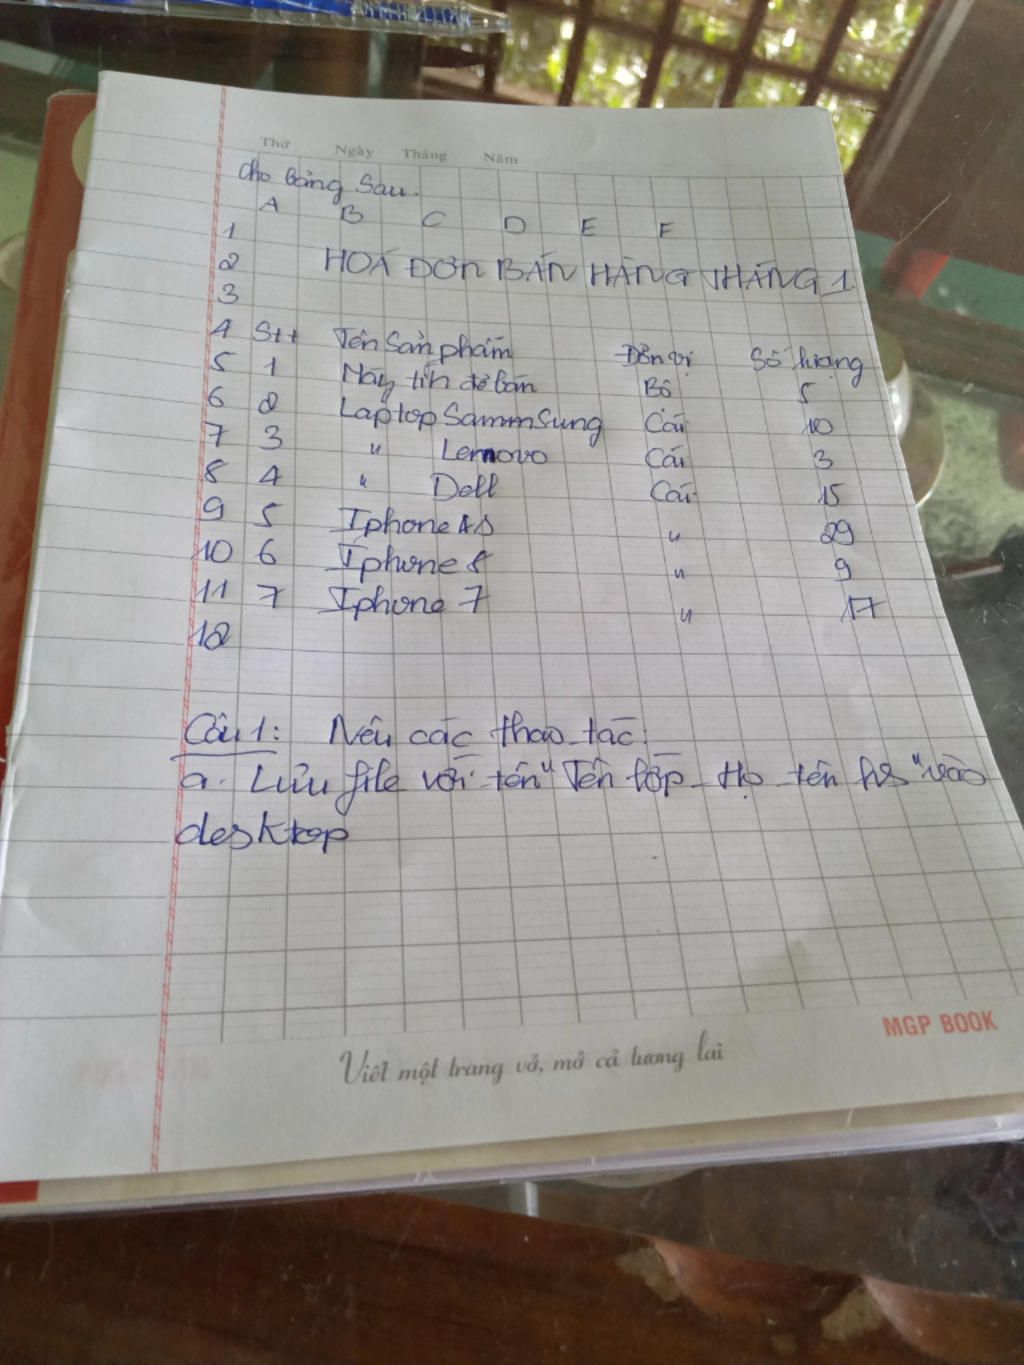 Thứ Ngày Tháng Năm
Cho bảng sau:
A B C D E F
1
2 HOÁ ĐƠN BÁN HÀNG THÁNG 1
3
4 Stt Tên sản phẩm Đơn vị Số lượng
5 1 Máy tính để bàn Bộ 5
6 2 Laptop SammSung Cái 10
7 3 " Lenovo Cái 3
8 4 " Dell Cái 15
9 5 Iphone 4S " 29
10 6 Iphone 8 " 9
11 7 Iphone 7 " 17
12
Câu 1: Nêu các thao tác:
a. Lưu file với tên "Tên lớp_Họ_tên hs" vào
desktop
MGP BOOK
Viết một trang vở, mở cả tương lai